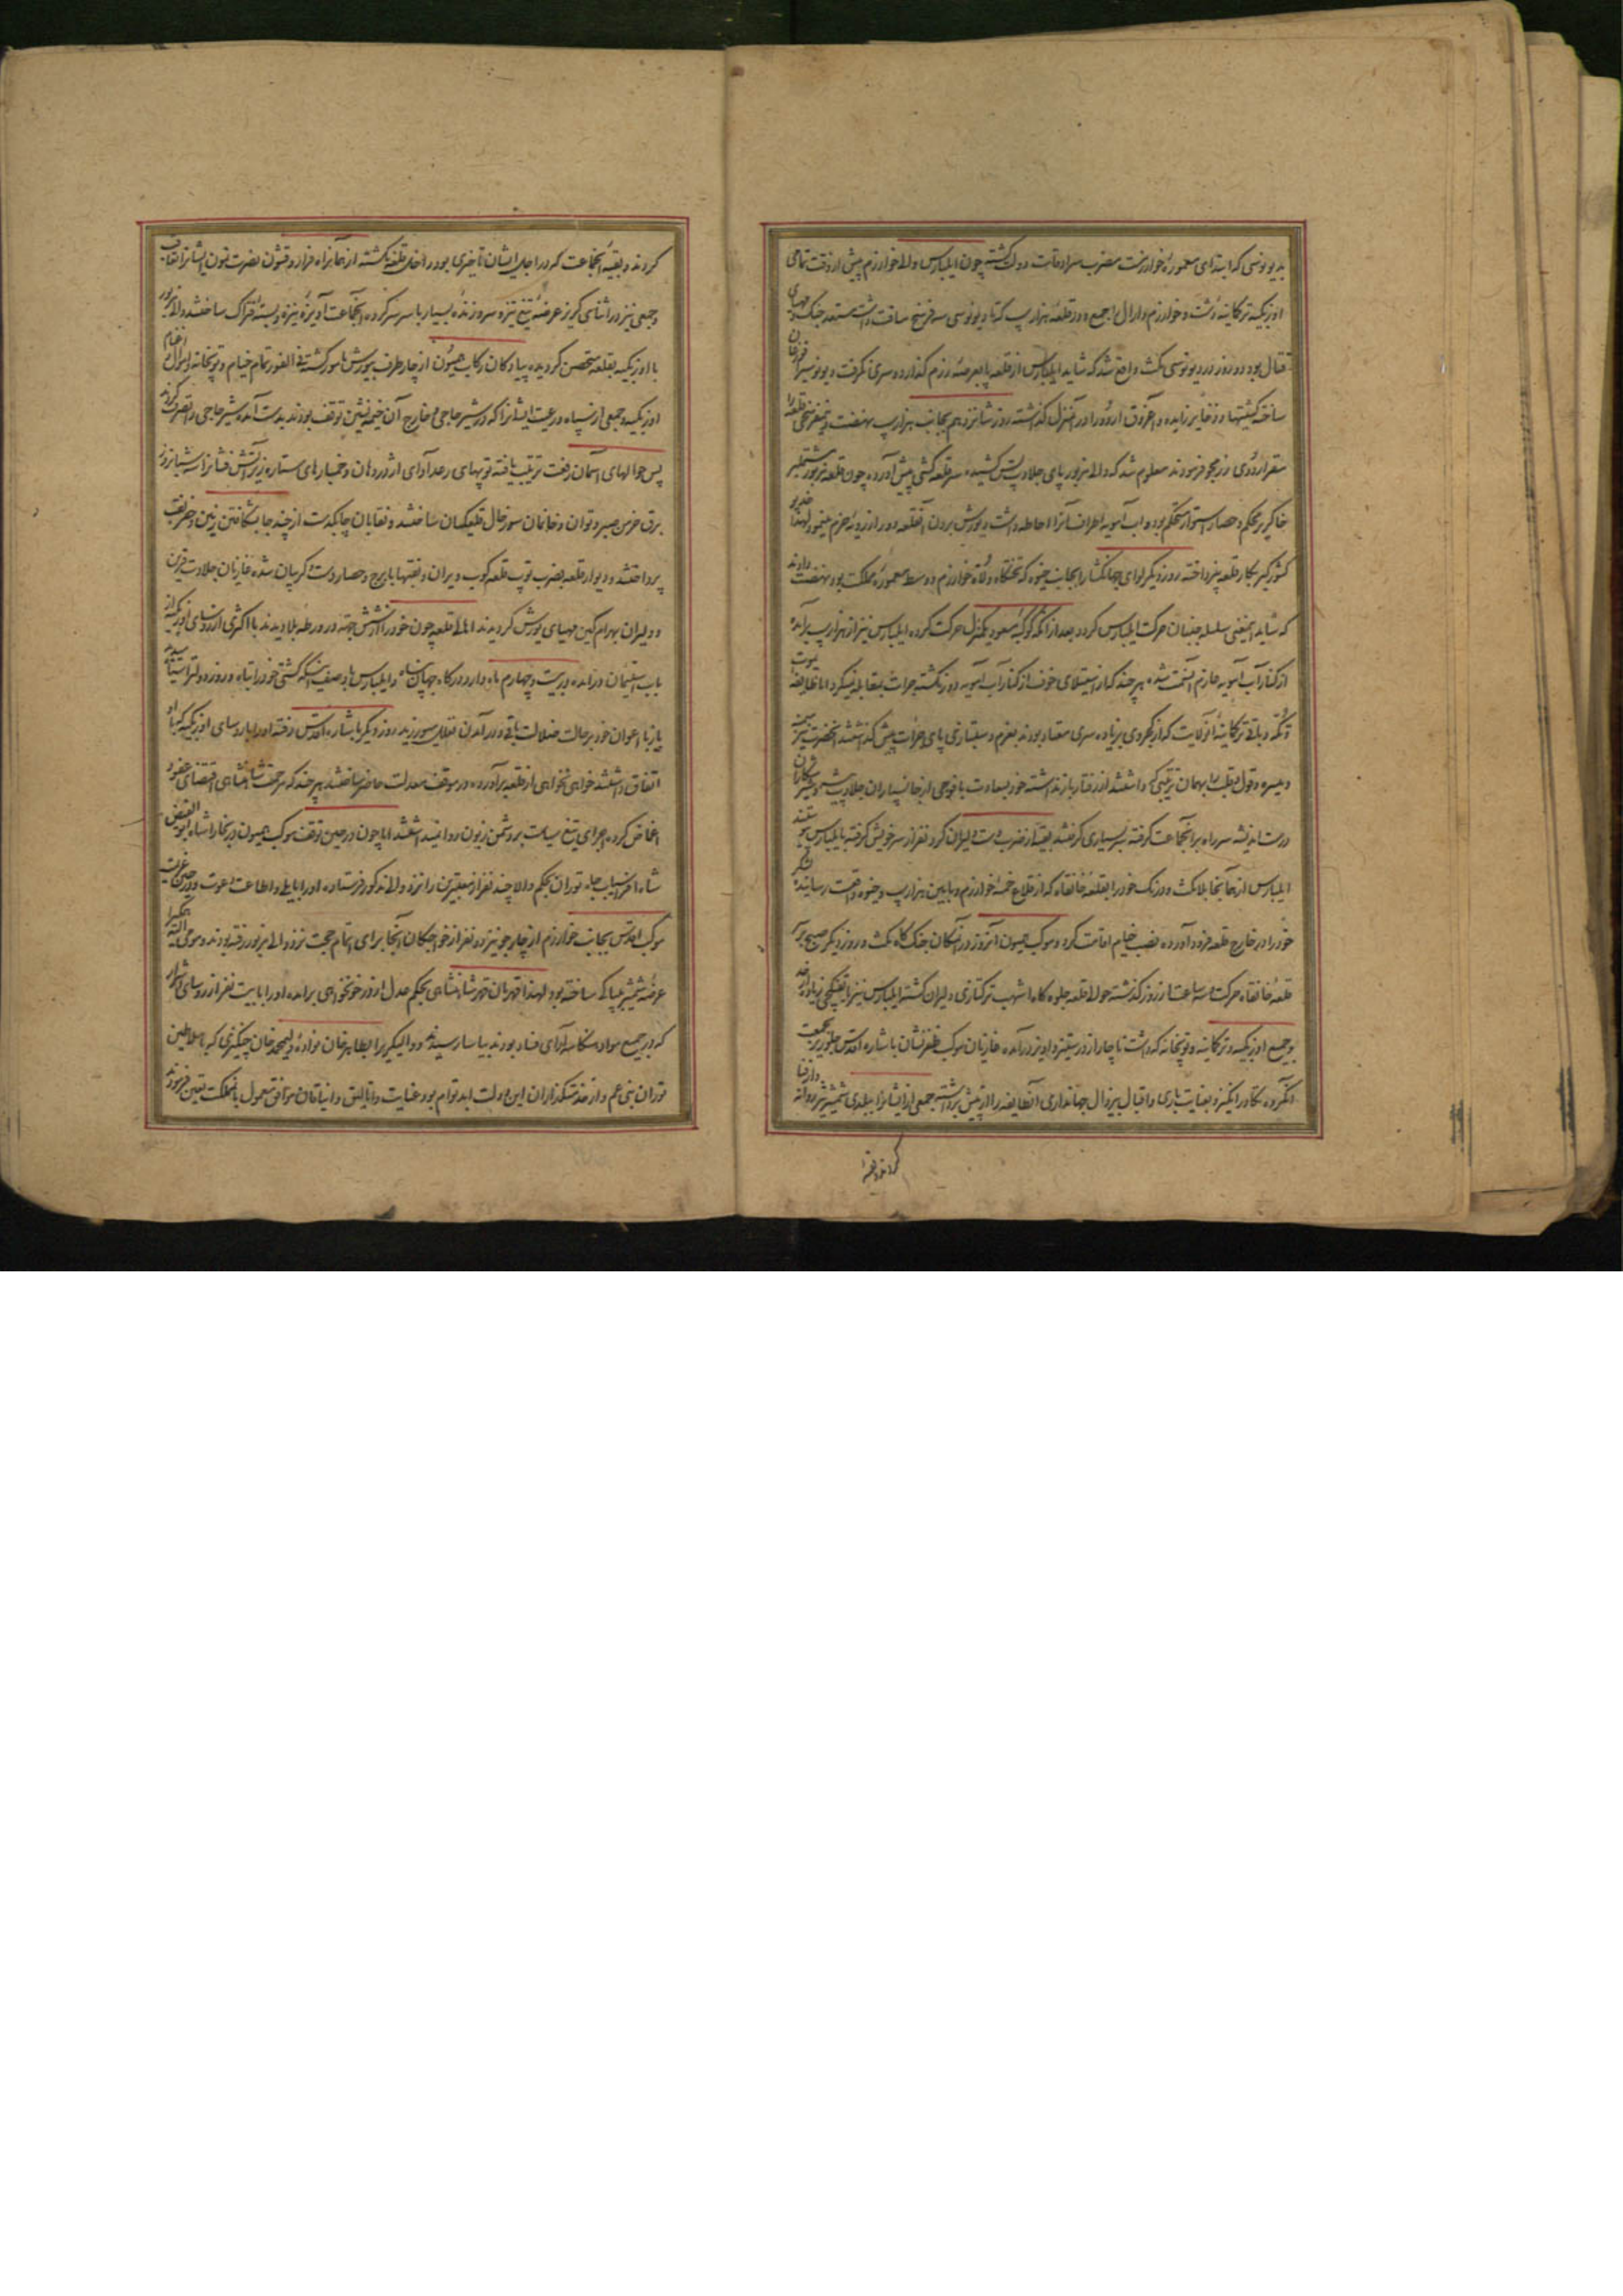 بدیوه‌نوسی که ابتدای معموره خوارزمست مضرب سرادقات دولت کشته چون ایلبارس والی خوارزم پیش از وقت تمامی
اوزبکیه و ترکمانیه دشت و خوارزم و ارال را جمع و در قلعه هزارسپ که تا دیوه‌نوسی سه فرسخ مسافت داشت مستعد جنک و مهیای
قتال بود دو روز در دیوه‌نوسی مکث واقع شد که شاید ایلبارس از قلعه پا بعرصه رزم کذارد و سری نکرفت
ساخته کشتیها و ذخایر زایده و آغروق اردو را در آنمنزل کذاشته روز شانزدهم بجانب هزارسپ نهضت
مقر اردوی فرمودند معلوم شد که والی مزبور پای جلادت پس کشیده سر قلعه کشی پیش آورده چون قلعه مزبور مشتمل بر
خاکریز محکم و حصار استوار مستحکم بود و آب آمویه اطراف آنرا احاطه داشت یورش بردن آنقلعه دور از رویه حزم مینمود لهذا
کشورکیر بکار قلعه نپرداخته روز دیکر لوای جهانکشا را بجانب خیوه که تختکاه ولاة خوارزم و وسط معموره مملکت بود نهضت دادند
که شاید اینمعنی سلسله جنبان حرکت ایلبارس کردد بعد از آنکه کوکبه مسعود یکمنزل حرکت کرده ایلبارس نیز از هزارسپ برآمده
از کنار آب آمویه عازم آنسمت شد هر چند که از استیلای خوف از کنار آب آمویه دور نکشته جرات بمقابله نمیکرد اما طایفه یموت
و تکه و باقی ترکمانیه آنولایت که از یکه‌کردی بزیاده سری معتاد بودند بعزم دستبازی پای جرات پیش کذاشتند آنحضرت میمنه
و میسره و قول و قلب را بهمان ترتیبی که داشتند از رفتار بازنداشته خود بسعادت با فوجی از جانسپاران جلادت پیشه
درست اندیشه سر راه بر آنجماعت کرفته سر بسیاری کرفتند بقیه از ضرب دست دلیران کرد فرار سر خویش کرفته بایلبارس پیوستند
ایلبارس از همانجا بلا مکث و درنک خود را بقلعه خانقاه که از قلاع خمسه خوارزم و مابین هزارسپ و خیوه واقعست رسانیده
خود را در خارج قلعه فرود آورده نصب خیام اقامت کرد و موکب همیون آنروز در آنمکان جنک کاه مکث و روز دیکر صبح بر سر
قلعه خانقاه حرکت و سه ساعت از روز کذشته حوالی قلعه جلوه کاه اشهب ترکتازی دلیران کشته ایلبارس نیز با تفنکچی زیاد از حد
و جمیع اوزبکیه و ترکمانیه و توپخانه که داشت ناچار از در ستیز و آویز درآمده غازیان موکب ظفرنشان باشاره اقدس جلوریز بجمعیت
آنکروه تکاور انکیز و بعنایت باری و اقبال بیزوال جهانداری آنطایفه را از پیش برداشته جمعی از ایشانرا ببلدی شمشیر روانه دار فنا
کردند و بقیه
کردند و بقیه آنجماعت که در اجل ایشان تاخیری بود داخل قلعه نکشته از همانراه فرار و قشون نصرت نمون ایشانرا تعاقب
و جمعی نیز در اثنای کریز عرضه تیغ تیز و سر و زنده بسیار با سر سرکرده آنجماعت آویزه نیزه و بسته فتراک ساختند والی مزبور
با اوزبکیه بقلعه متحصن کردیده پیادکان رکاب همیون از چار طرف بیورش مامور کشته فی الفور تمام خیام و توپخانه و اموال و اغنام
اوزبکیه و جمعی از سپاه و رعیت ایشانرا که در شیرحاجی و خارج آن خیمه نشین توقف بودند بدست آمده شیرحاجی را تصرف کردند
پس حوالهای آسمان رفعت ترتیب یافته توپهای رعدآوای اژدردهان و خمپارهای ستاره ریز آتش فشانرا سه شبانروز
برق خرمن صبر و توان و خانمان سوز حال قلعکیان ساختند و نقابان چابکدست از چند جا بشکافتن زمین و حفر نقب
پرداختند و دیوار قلعه بضرب توپ قلعه کوب ویران و نقبها بپای برج و حصار دست و کریبان شده غازیان جلادت قرین
و دلیران بهرام کین مهیای یورش کردیدند اهالی قلعه چون خود را از شش جهة در ورطه بلا دیدند با اکثری از رؤسای اوزبکیه از
باب استیمان درآمده در بیست و چهارم ماه وارد درکاه جهان پناه و ایلبارس با وصف اینکه کشتی خود را تباه و روز دولترا سیاه دید
باز با اعوان خود بر حالت ضلالت باقی و در آمدن تعلل میورزید روز دیکر باشاره اقدس رفته او را با رؤسای اوزبکیه که با او
اتفاق داشتند خواهی نخواهی از قلعه برآورده در موقف معدلت حاضر ساختند هر چند که مرحمت شاهنشاهی اقتضای عفو و
اغماض کرده اجرای تیغ سیاست بر دشمن زبون روا نمیداشتند اما چون در حین توقف موکب همیون در بخارا شاه ابوالفیض
شاه افراسیاب جاه توران بحکم والا چند نفر از معتبرین را نزد والی مذکور فرستاده او را بایلی و اطاعت دعوت و در حین عزیمت
موکب اقدس بجانب خوارزم از چارجو نیز دو نفر از خواجکان آنجا برای اتمام حجت نزد والی مزبور رفته بودند و مومی الیه
عرضه شمشیر بیباکی ساخته بود لهذا قهرمان قهر شاهنشاهی بحکم عدل از در خونخواهی برآمده او را با بیست نفر از رؤسای اشرار
که در جمیع مواد هنکامه آرای فساد بودند بیاسا رسیدند و والیکری را بطاهر خان نواده ولیمحمد خان چنکیزی که با سلاطین
توران بنی عم و از خدمتکزاران این دولت ابد توام بود عنایت و اتالیق و ایناقان موافق معمول بآنمملکت تعیین فرمودند